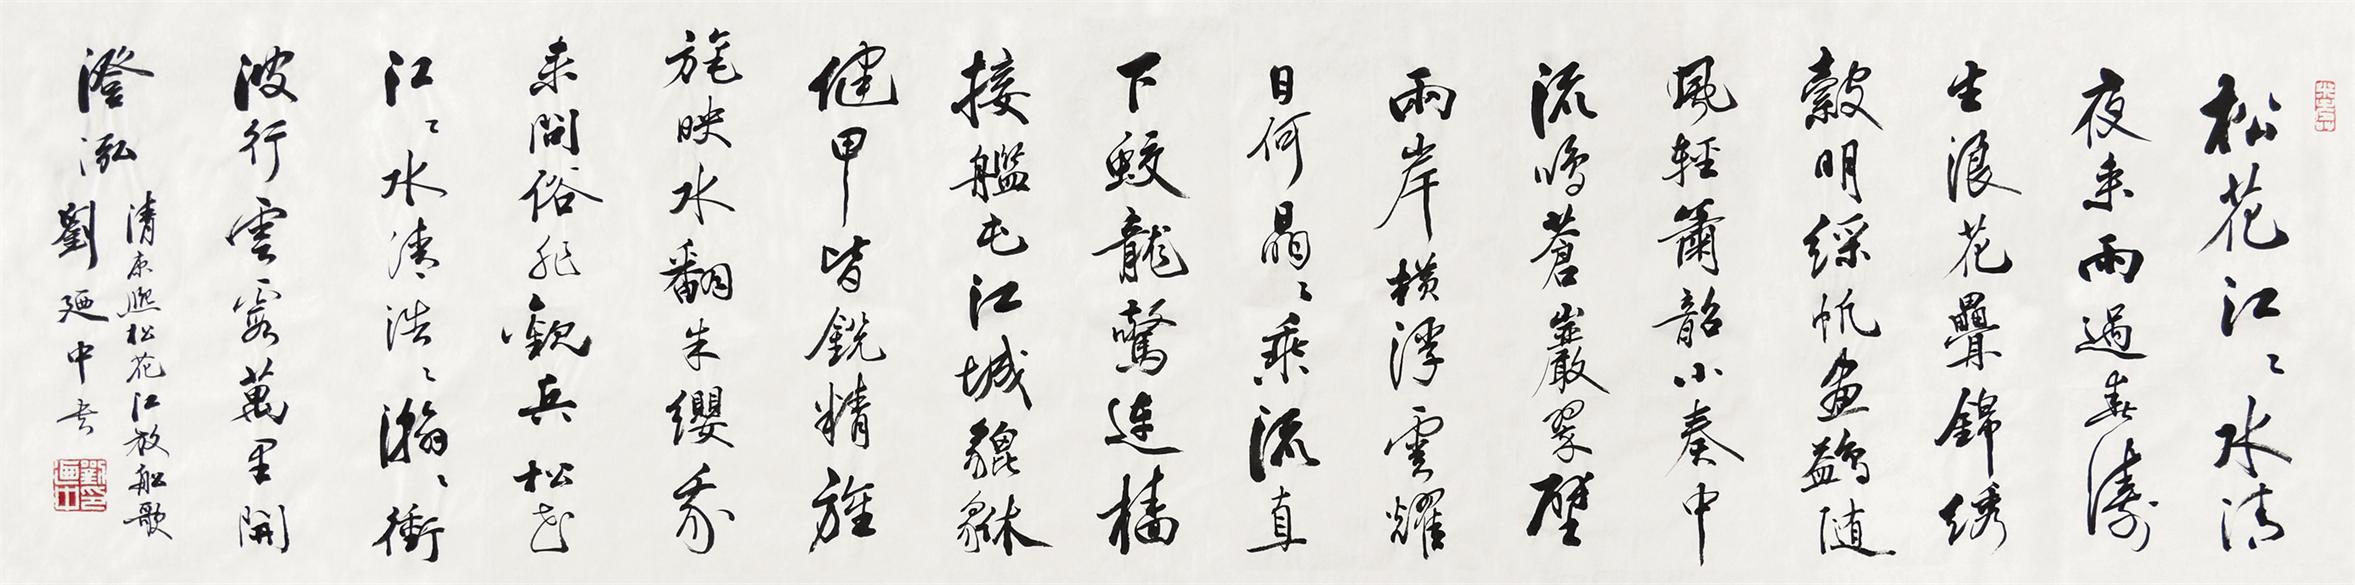 松花江〻水清
夜来雨過春濤
生浪花疊錦绣
縠明綵帆畫鷁随
風輕簫韶小奏中
流鳴蒼巖翠壁
兩岸横浮雲耀
日何晶〻乘流直
下蛟龍驚連檣
接艦屯江城貔貅
健甲皆鋭精旌
旄映水翻朱纓我
来問俗非觀兵松花
江〻水清浩〻瀚〻衝
波行雲霞萬里開
澄泓
清康熙松花江放船歌
劉廼中书